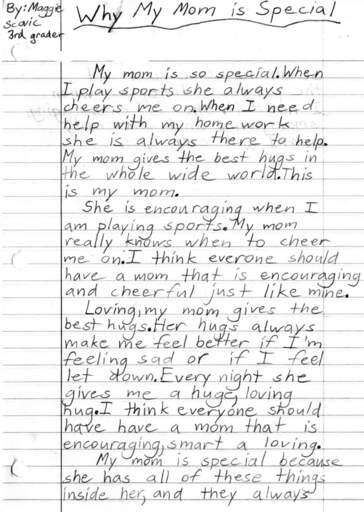 By: Maggie
Scavic
3rd grader
Why My Mom is Special
My mom is so special. When
I play sports she always
cheers me on. When I need
help with my home work
she is always there to help.
My mom gives the best hugs in
the whole wide world. This
is my mom.
She is encouraging when I
am playing sports. My mom
really knows when to cheer
me on. I think everone should
have a mom that is encouraging
and cheerful just like mine.
Loving, my mom gives the
best hugs. Her hugs always
make me feel better if I'm
feeling sad or if I feel
let down. Every night she
gives me a huge, loving
hug. I think everyone should
have have a mom that is
encouraging, smart a loving.
My mom is special because
she has all of these things
inside her, and they always